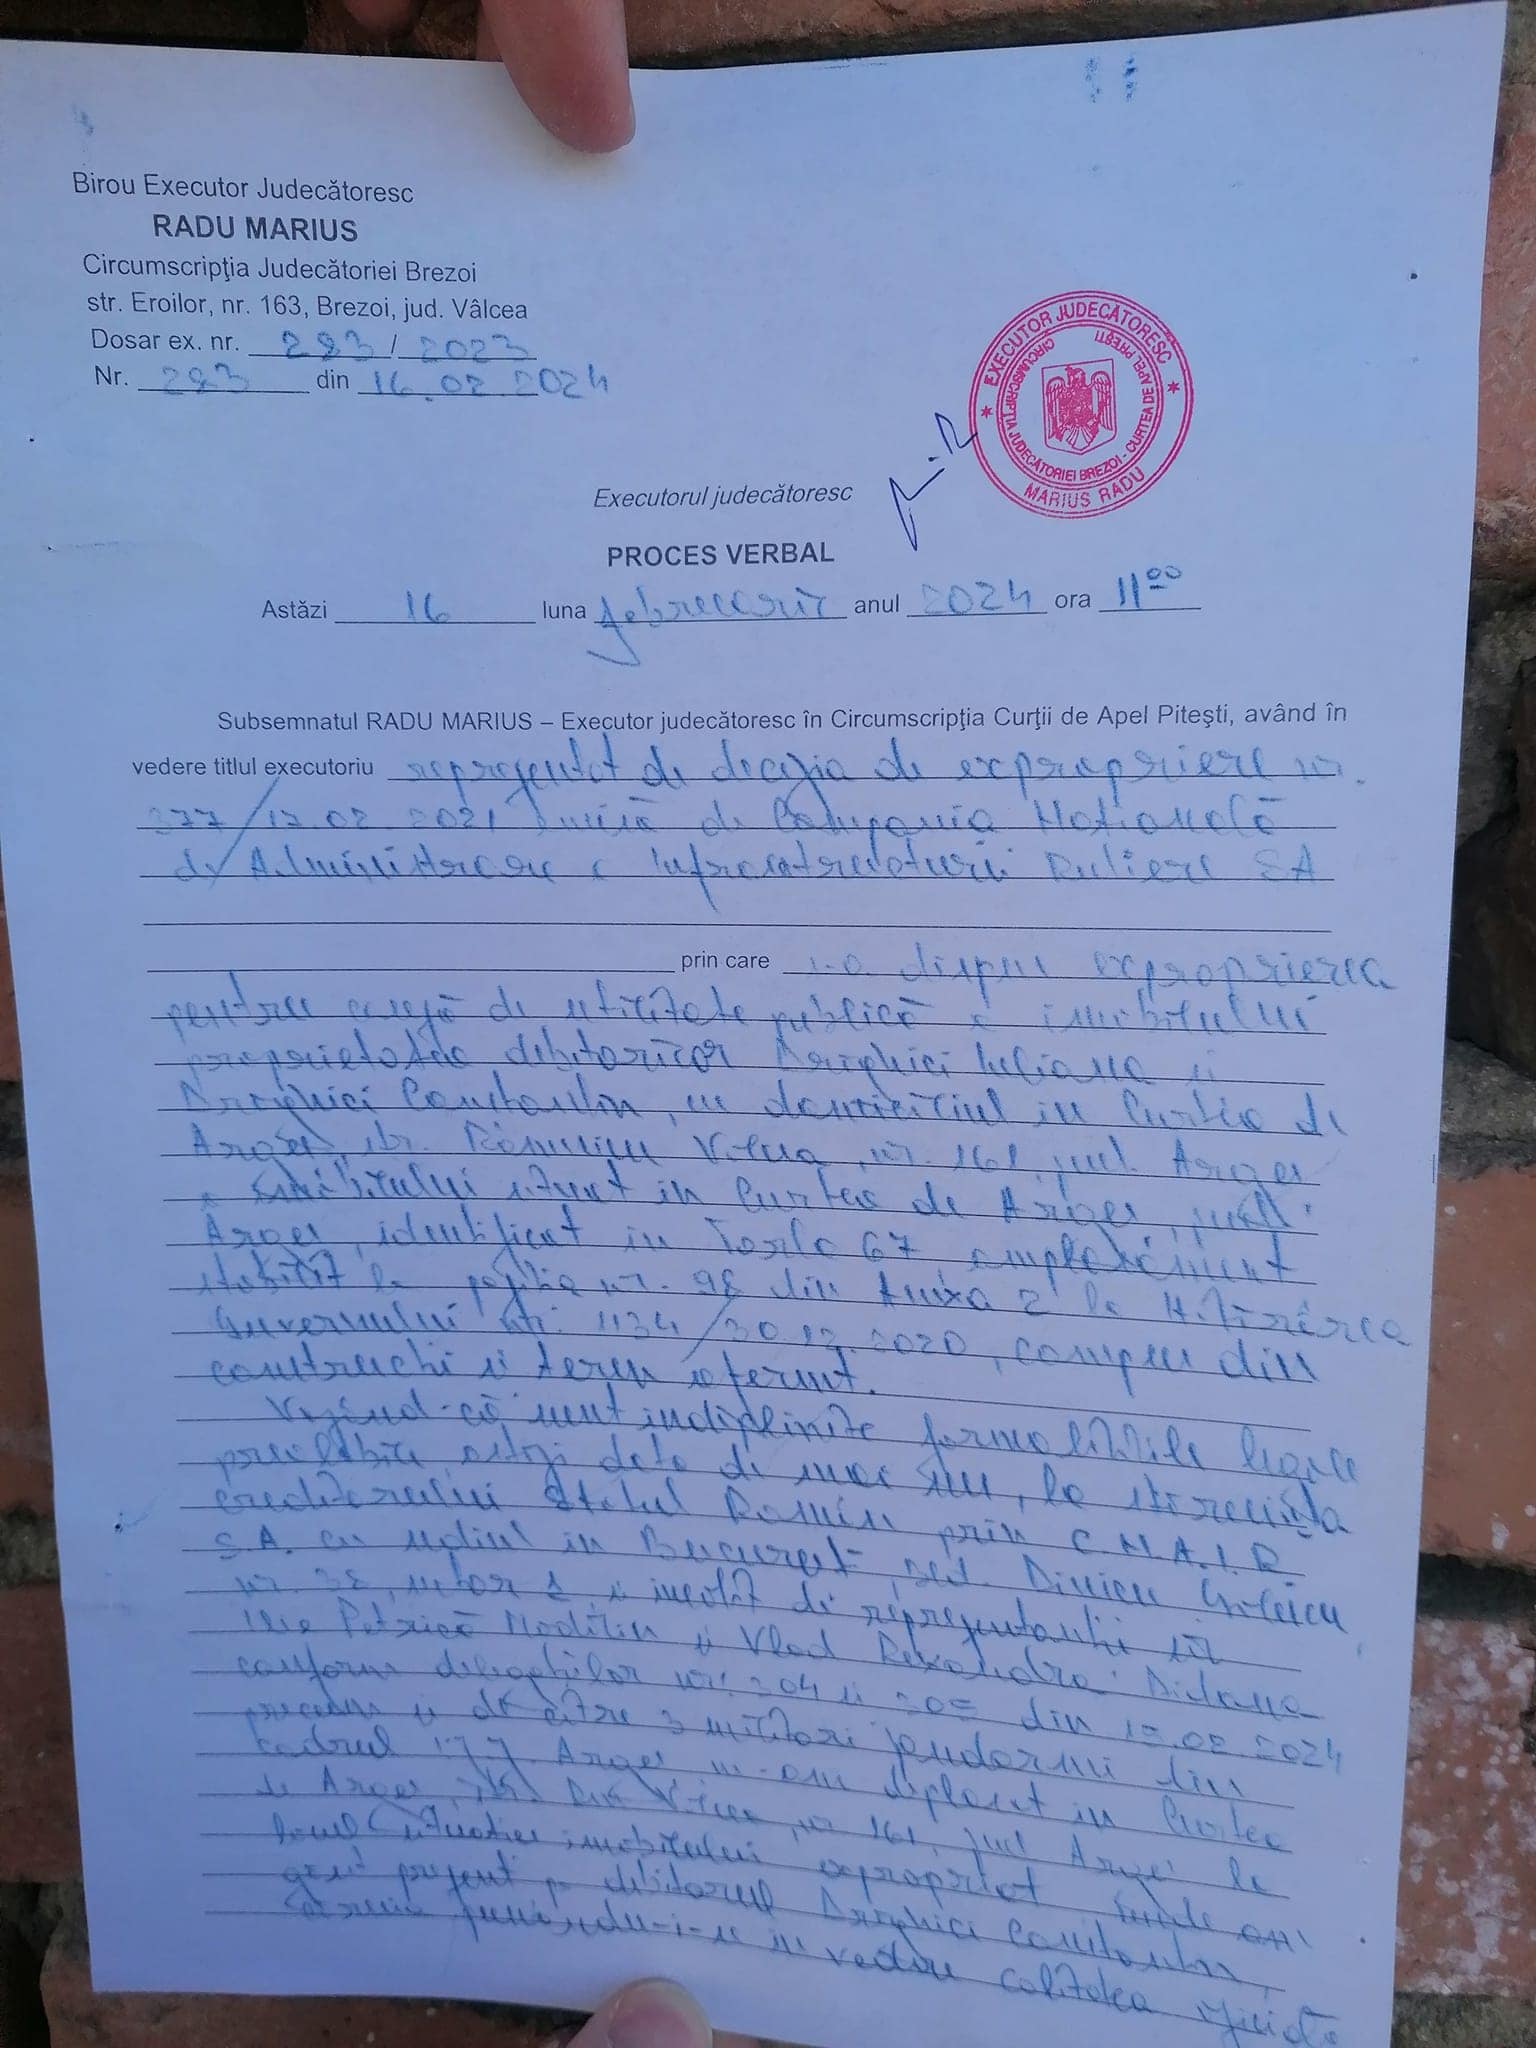 Birou Executor Judecătoresc
RADU MARIUS
Circumscripţia Judecătoriei Brezoi
str. Eroilor, nr. 163, Brezoi, jud. Vâlcea
Dosar ex. nr. 293 / 2023
Nr. 293 din 16.02.2024
EXECUTOR JUDECĂTORESC
CIRCUMSCRIPŢIA JUDECĂTORIEI BREZOI - CURTEA DE APEL PITEŞTI
MARIUS RADU
Executorul judecătoresc
PROCES VERBAL
Astăzi 16 luna februarie anul 2024 ora 11 00
Subsemnatul RADU MARIUS – Executor judecătoresc în Circumscripţia Curţii de Apel Piteşti, având în
vedere titlul executoriu reprezentat de decizia de expropriere nr.
377/17.02.2021 emisă de Compania Națională
de Administrare a Infrastructurii Rutiere SA
prin care s-a dispus exproprierea
pentru cauză de utilitate publică a imobilului
proprietatea debitorilor Arghici Iuliana și
Arghici Constantin, cu domiciliul în Curtea de
Argeș, str. Romulus Vâlcea, nr. 161, jud. Argeș
a imobilului situat în Curtea de Argeș, jud.
Argeș, identificat în Tarla 67 amplasament
stabilit la poziția nr. 98 din Anexa 2 la Hotărârea
Guvernului nr. 1134/30.12.2020, compus din
construcții și teren aferent.
Văzând că sunt îndeplinite formalitățile legale
prealabile, astăzi data de mai sus, la stăruința
creditorului Statul Român prin C.N.A.I.R
S.A. cu sediul în București, bd. Dinicu Golescu
nr. 38, sector 1, și însoțit de reprezentanții săi
Petrică Mădălin și Vlad Ruxandra
conform delegațiilor nr. 304 și 305 din 15.02.2024
precum și de către 3 militari jandarmi din
cadrul Argeș m-am deplasat în Curtea
de Argeș, str. Vâlcea, nr 161, jud Argeș la
locul situației imobilului expropriat unde am
găsit prezent pe debitorul Arghici Constantin,
în vedere calitatea